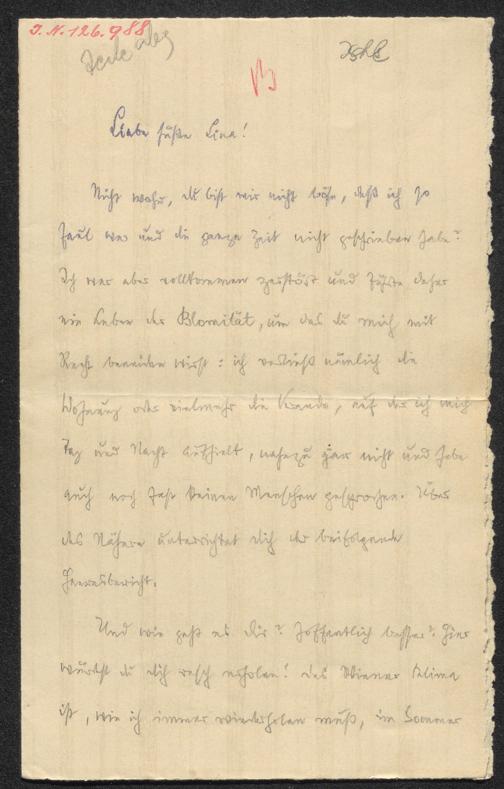 J.N. 126.988
Liebe süße Lina!
Nicht wahr, du bist mir nicht böse, daß ich so
faul war und die ganze Zeit nicht geschrieben habe?
Ich war aber vollkommen zerstört und führte daher
ein Leben der Blomität, um das du mich mit
Recht beneiden wirst: ich verließ nämlich die
Wohnung oder vielmehr die Veranda, auf der ich mich
Tag und Nacht aufhielt, nahezu gar nicht und habe
auch noch fast keinen Menschen gesprochen. Über
das Nähere unterrichtet dich der beifolgende
Heeresbericht.
Und wie geht es dir? Hoffentlich besser? Hier
würdest du dich rasch erholen! das Wiener Klima
ist, wie ich immer wiederholen muß, im Sommer